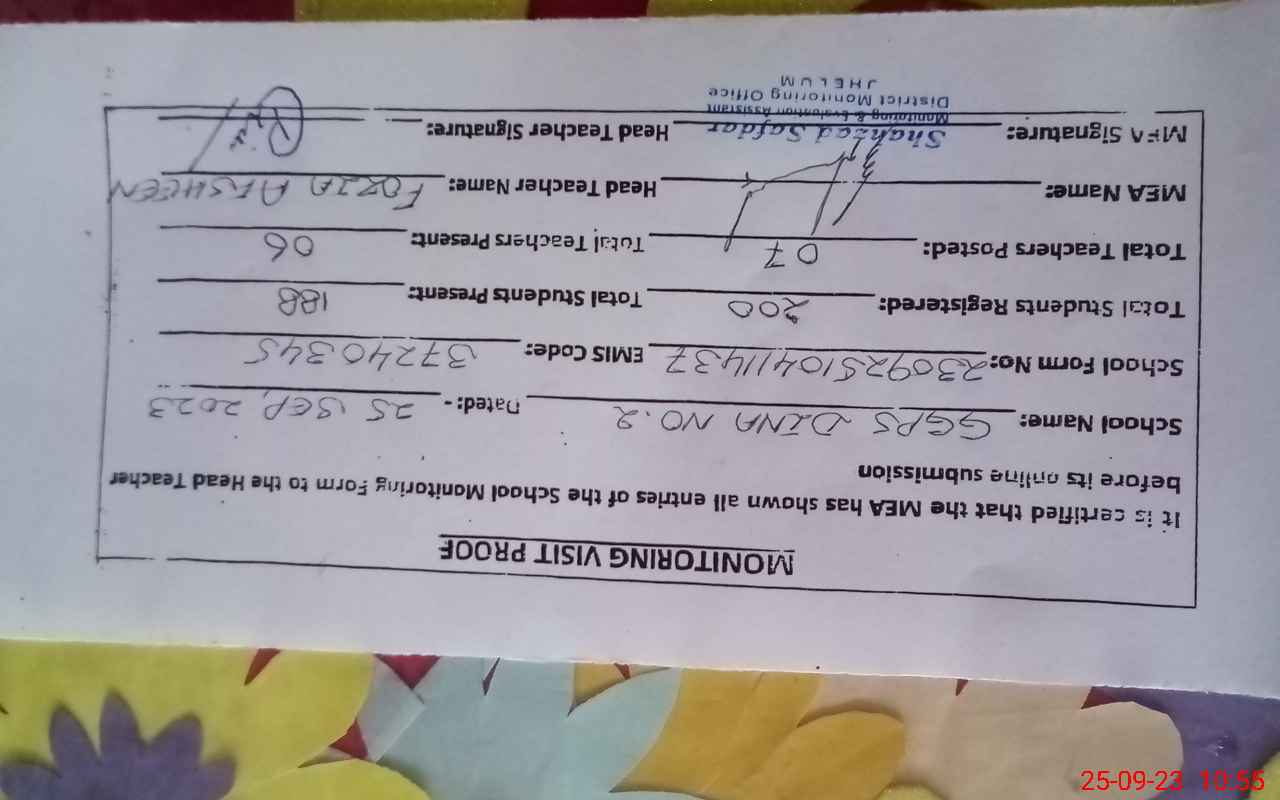 MONITORING VISIT PROOF
It is certified that the MEA has shown all entries of the School Monitoring Form to the Head Teacher
before its online submission
School Name: GGPS DINA NO.2 Dated:- 25 SEP, 2023
School Form No: 23092510411437 EMIS Code: 37240345
Total Students Registered: 200 Total Students Present: 188
Total Teachers Posted: 07 Total Teachers Present: 06
MEA Name: Head Teacher Name: FOZIA AFSHEEN
MEA Signature: Shahzad Safdar Head Teacher Signature:
Monitoring & Evaluation Assistant
District Monitoring Office
JHELUM
25-09-23 10:55